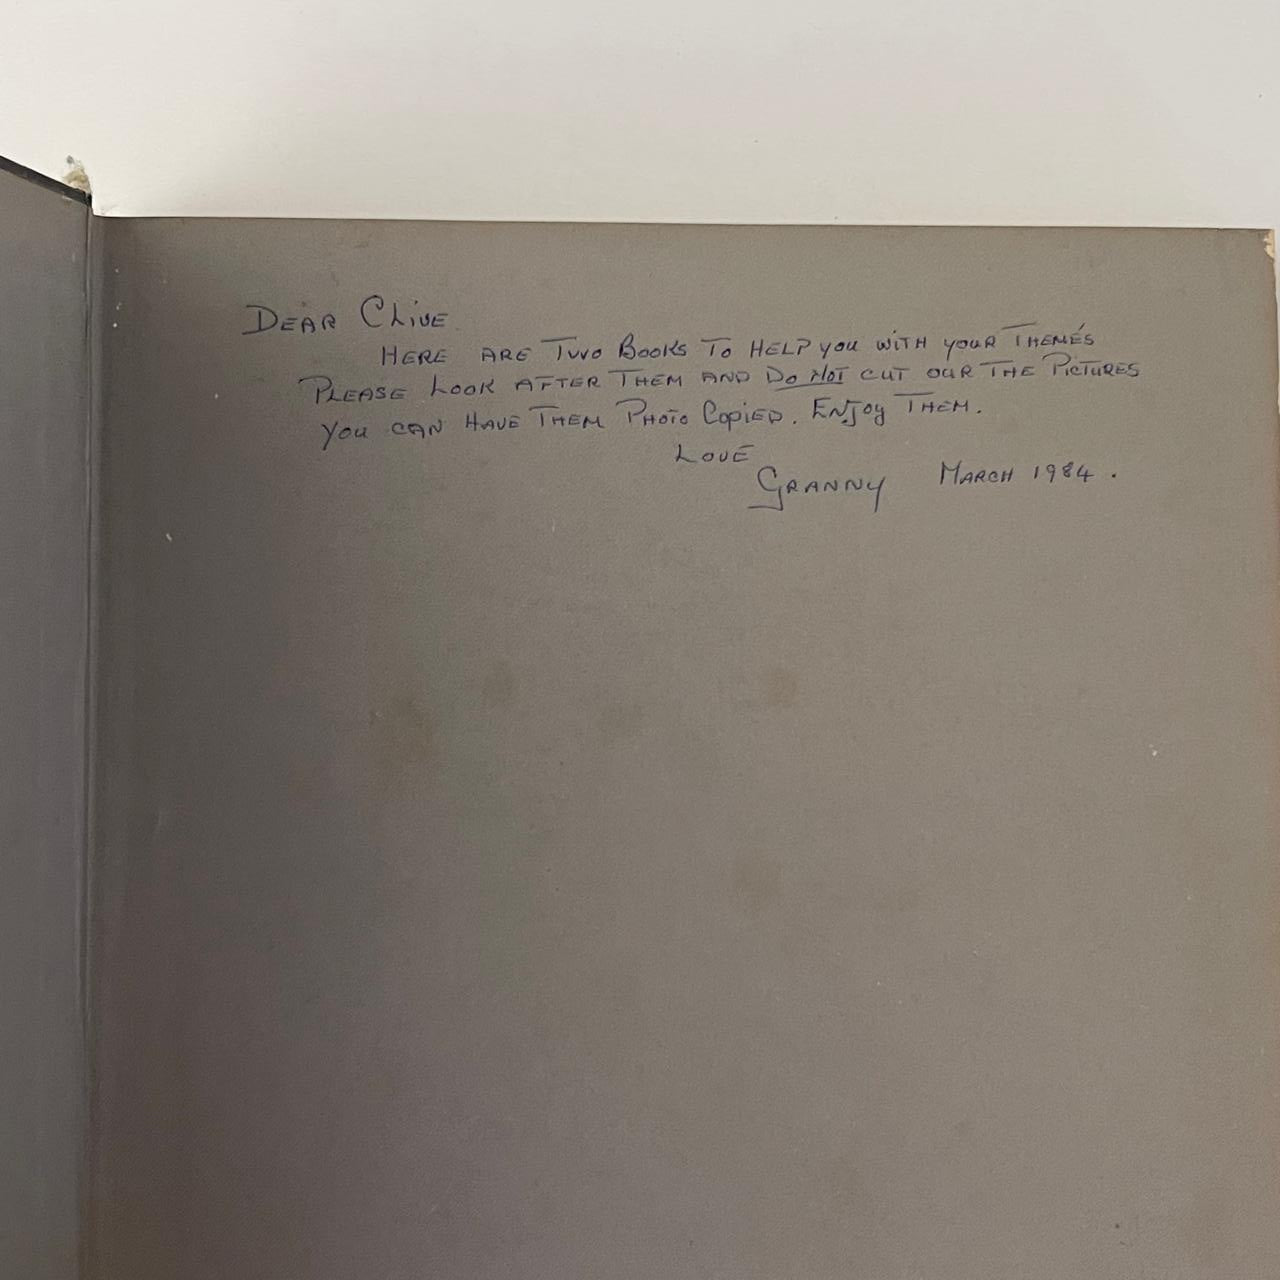 DEAR CLiVE
HERE ARE TWO BOOKS TO HELP you WiTH YOUR THEMÉS
PLEASE LOOK AFTER THEM AND DO NOT CUT OUR THE PiCTURES
YOU CAN HAVE THEM PHOTO COPiED. ENJOY THEM.
LOVE
GRANNY MARCH 1984.